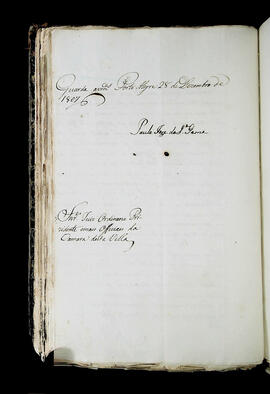 Guarda a vm.ces Porto Alegre 28 de Dezembro de
1807
Paulo Joze da S.ª Gama
Snr.es Juiz Ordinario Pre-
zidente e mais Officiaes da
Camara desta Villa